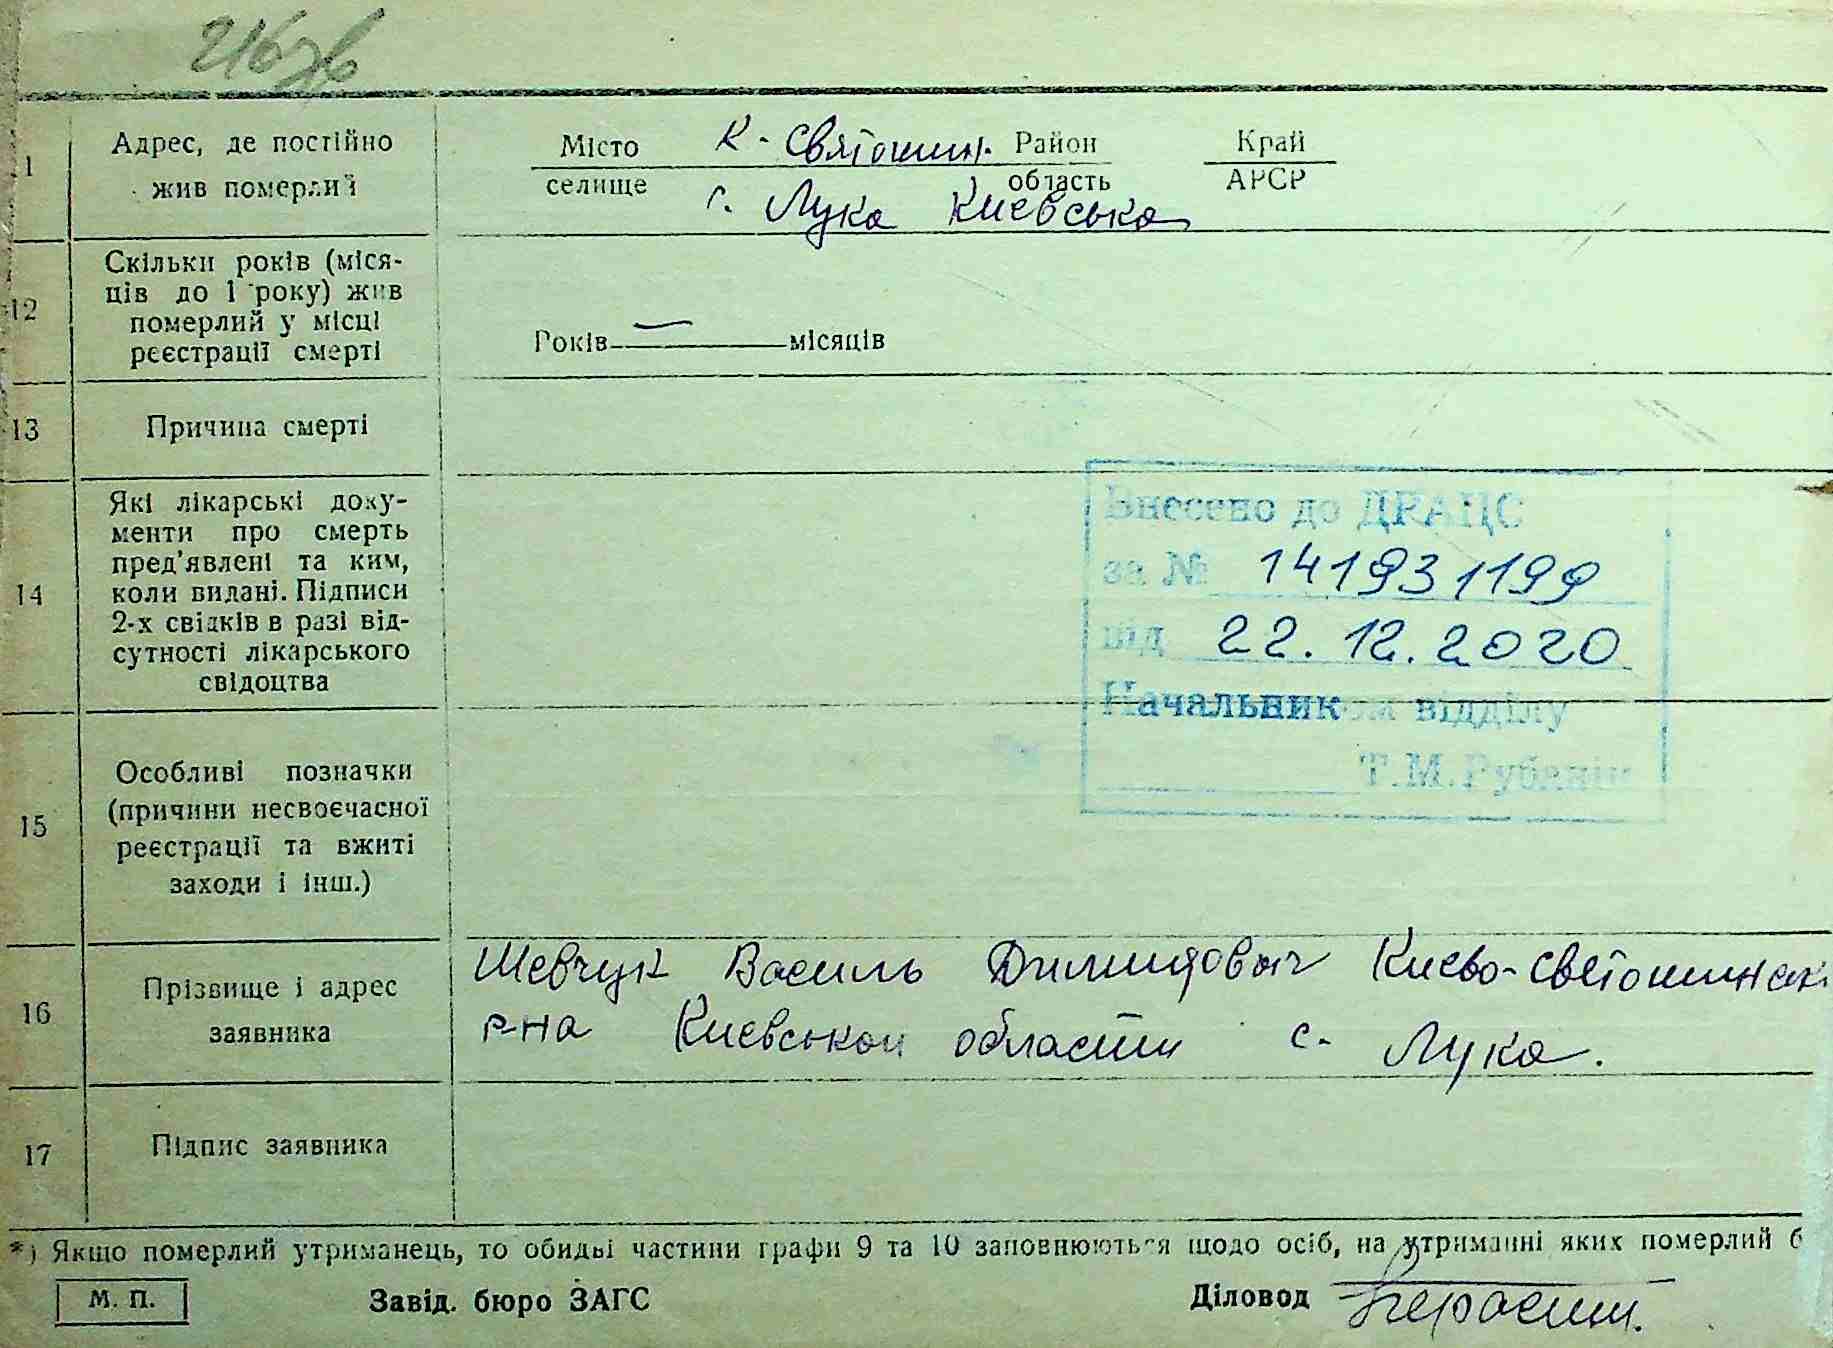 1
Адрес, де постійно
жив померлий
Місто К-Святошин. Район Край
селище область АРСР
с. Лука Киевська
12
Скільки років (міся-
ців до 1 року) жив
померлий у місці
реєстрації смерті
Років місяців
13
Причина смерті
14
Які лікарські доку-
менти про смерть
пред'явлені та ким,
коли видані. Підписи
2-х свідків в разі від-
сутності лікарського
свідоцтва
Внесено до ДРАЦС
за № 141931199
від 22.12.2020
Начальник відділу
Т.М.Рубаній
15
Особливі позначки
(причини несвоєчасної
реєстрації та вжиті
заходи і інш.)
16
Прізвище і адрес
заявника
Шевчук Василь Димидович Киево-светошинск
р-на Киевськои области с. Лука.
17
Підпис заявника
*) Якщо померлий утриманець, то обидві частини графи 9 та 10 заповнюються щодо осіб, на утриманні яких померлий б
М. П. Завід. бюро ЗАГС Діловод